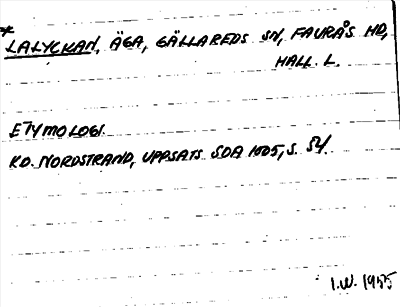 * LALYCKAN, ÄGA, GÄLLAREDS SN, FAURÅS HD,
HALL. L.
ETYMOLOGI.
K.D. NORDSTRAND, UPPSATS SOA 1005, S. 54.
I.W. 1955